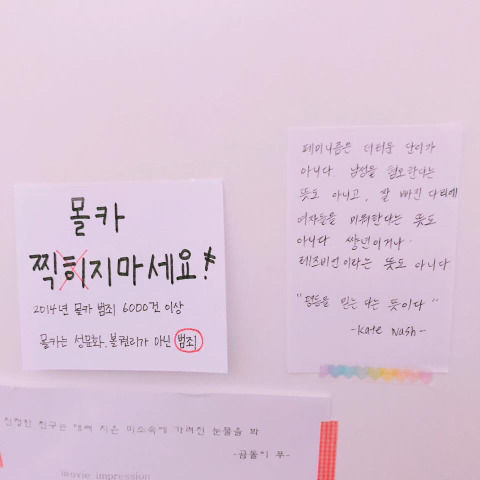 몰카
찍히지마세요!
2014년 몰카 범죄 6000건 이상
몰카는 성문화, 볼권리가 아닌 범죄
페미니즘은 더러운 단어가
아니다. 남성을 혐오한다는
뜻도 아니고, 잘 빠진 다리에
여자들을 미워한다는 뜻도
아니다 쌍년이거나
레즈비언이라는 뜻도 아니다
"평등을 믿는 다는 뜻이다"
-Kate Nash-
진정한 친구는 애써 지은 미소속에 가려진 눈물을 봐
-곰돌이 푸-
movie impression